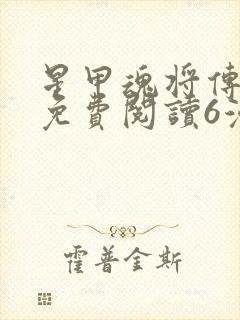 星甲魂将傳
免費閱讀6
霍普金斯